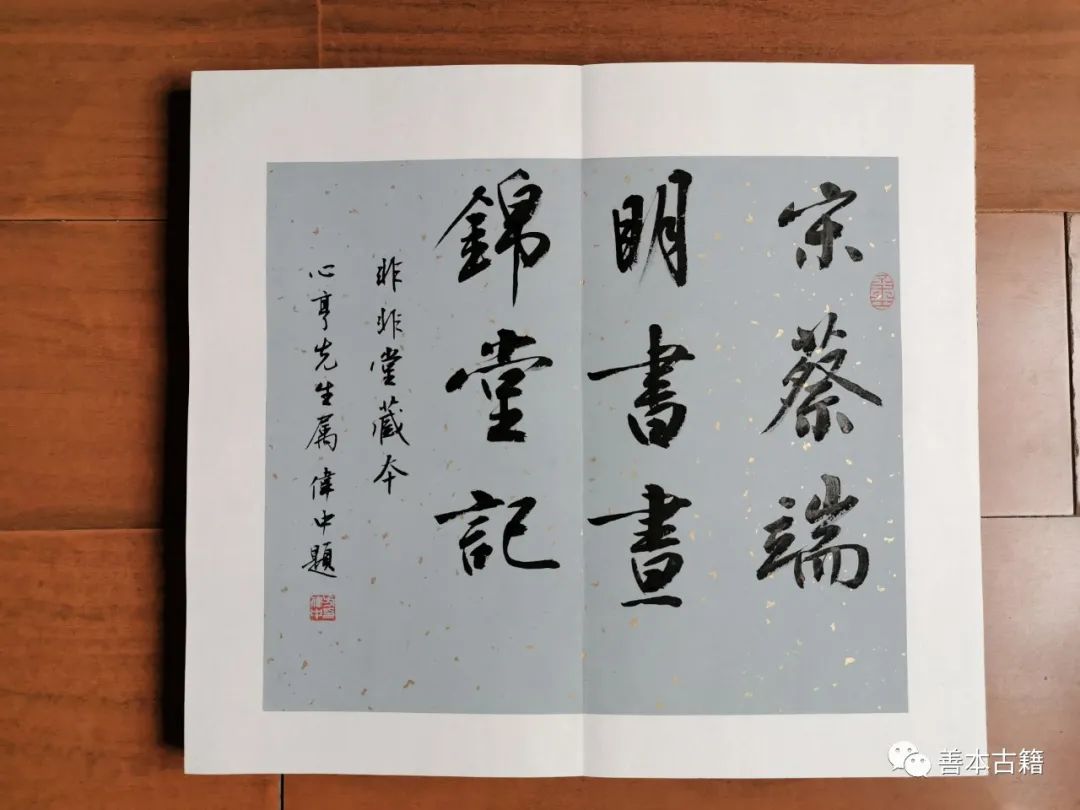 宋蔡端
明書晝
錦堂記
非非堂藏本
心亨先生属偉中題
善本古籍